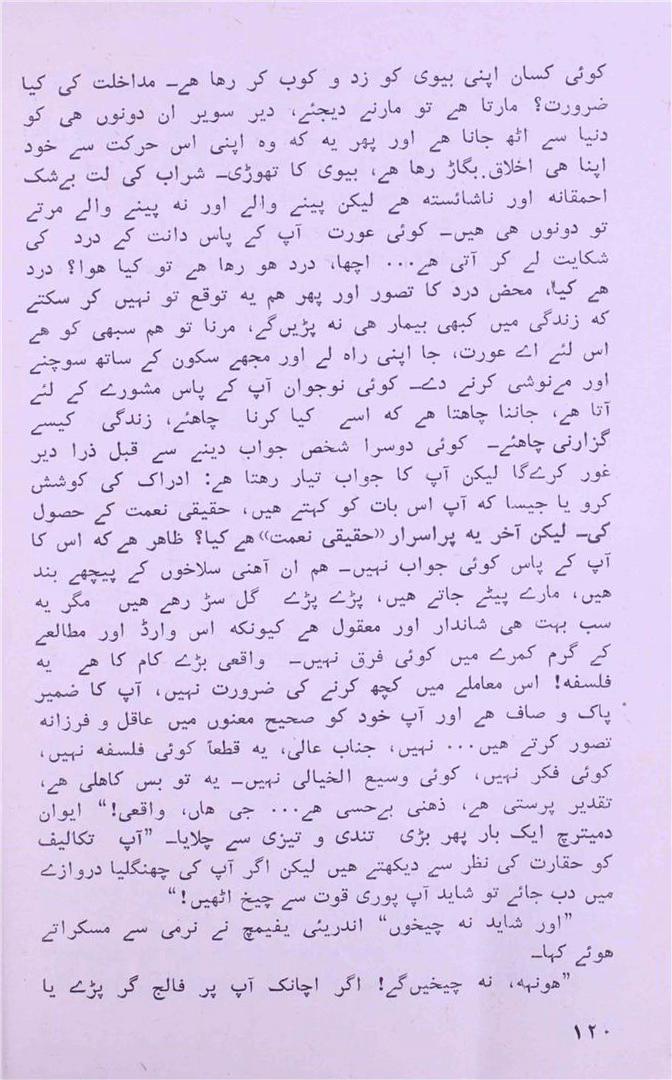 کوئی کسان اپنی بیوی کو زد و کوب کر رہا ہے۔ مداخلت کی کیا
ضرورت؟ مارتا ہے تو مارنے دیجئے، دیر سویر ان دونوں ہی کو
دنیا سے اٹھ جانا ہے اور پھر یہ کہ وہ اپنی اس حرکت سے خود
اپنا ہی اخلاق بگاڑ رہا ہے، بیوی کا تھوڑی۔ شراب کی لت بےشک
احمقانہ اور ناشائستہ ہے لیکن پینے والے اور نہ پینے والے مرتے
تو دونوں ہی ہیں۔ کوئی عورت آپ کے پاس دانت کے درد کی
شکایت لے کر آتی ہے... اچھا، درد ہو رہا ہے تو کیا ہوا؟ درد
ہے کیا، محض درد کا تصور اور پھر ہم یہ توقع تو نہیں کر سکتے
کہ زندگی میں کبھی بیمار ہی نہ پڑیں گے، مرنا تو ہم سبھی کو ہے
اس لئے اے عورت، جا اپنی راہ لے اور مجھے سکون کے ساتھ سوچنے
اور مےنوشی کرنے دے۔ کوئی نوجوان آپ کے پاس مشورے کے لئے
آتا ہے، جاننا چاہتا ہے کہ اسے کیا کرنا چاہئے، زندگی کیسے
گزارنی چاہئے۔ کوئی دوسرا شخص جواب دینے سے قبل ذرا دیر
غور کرے گا لیکن آپ کا جواب تیار رہتا ہے: ادراک کی کوشش
کرو یا جیسا کہ آپ اس بات کو کہتے ہیں، حقیقی نعمت کے حصول
کی۔ لیکن آخر یہ پراسرار «حقیقی نعمت» ہے کیا؟ ظاہر ہے کہ اس کا
آپ کے پاس کوئی جواب نہیں۔ ہم ان آہنی سلاخوں کے پیچھے بند
ہیں، مارے پیٹے جاتے ہیں، پڑے پڑے گل سڑ رہے ہیں مگر یہ
سب بہت ہی شاندار اور معقول ہے کیونکہ اس وارڈ اور مطالعے
کے گرم کمرے میں کوئی فرق نہیں۔ واقعی بڑے کام کا ہے یہ
فلسفہ! اس معاملے میں کچھ کرنے کی ضرورت نہیں، آپ کا ضمیر
پاک و صاف ہے اور آپ خود کو صحیح معنوں میں عاقل و فرزانہ
تصور کرتے ہیں... نہیں، جناب عالی، یہ قطعاً کوئی فلسفہ نہیں،
کوئی فکر نہیں، کوئی وسیع الخیالی نہیں۔ یہ تو بس کاہلی ہے،
تقدیر پرستی ہے، ذہنی بےحسی ہے... جی ہاں، واقعی!“ ایوان
دمیترچ ایک بار پھر بڑی تندی و تیزی سے چلایا۔ ”آپ تکالیف
کو حقارت کی نظر سے دیکھتے ہیں لیکن اگر آپ کی چھنگلیا دروازے
میں دب جائے تو شاید آپ پوری قوت سے چیخ اٹھیں!“
”اور شاید نہ چیخوں“ اندریئی یفیمچ نے نرمی سے مسکراتے
ہوئے کہا۔
”ہونہہ، نہ چیخیں گے! اگر اچانک آپ پر فالج گر پڑے یا
۱۲۰